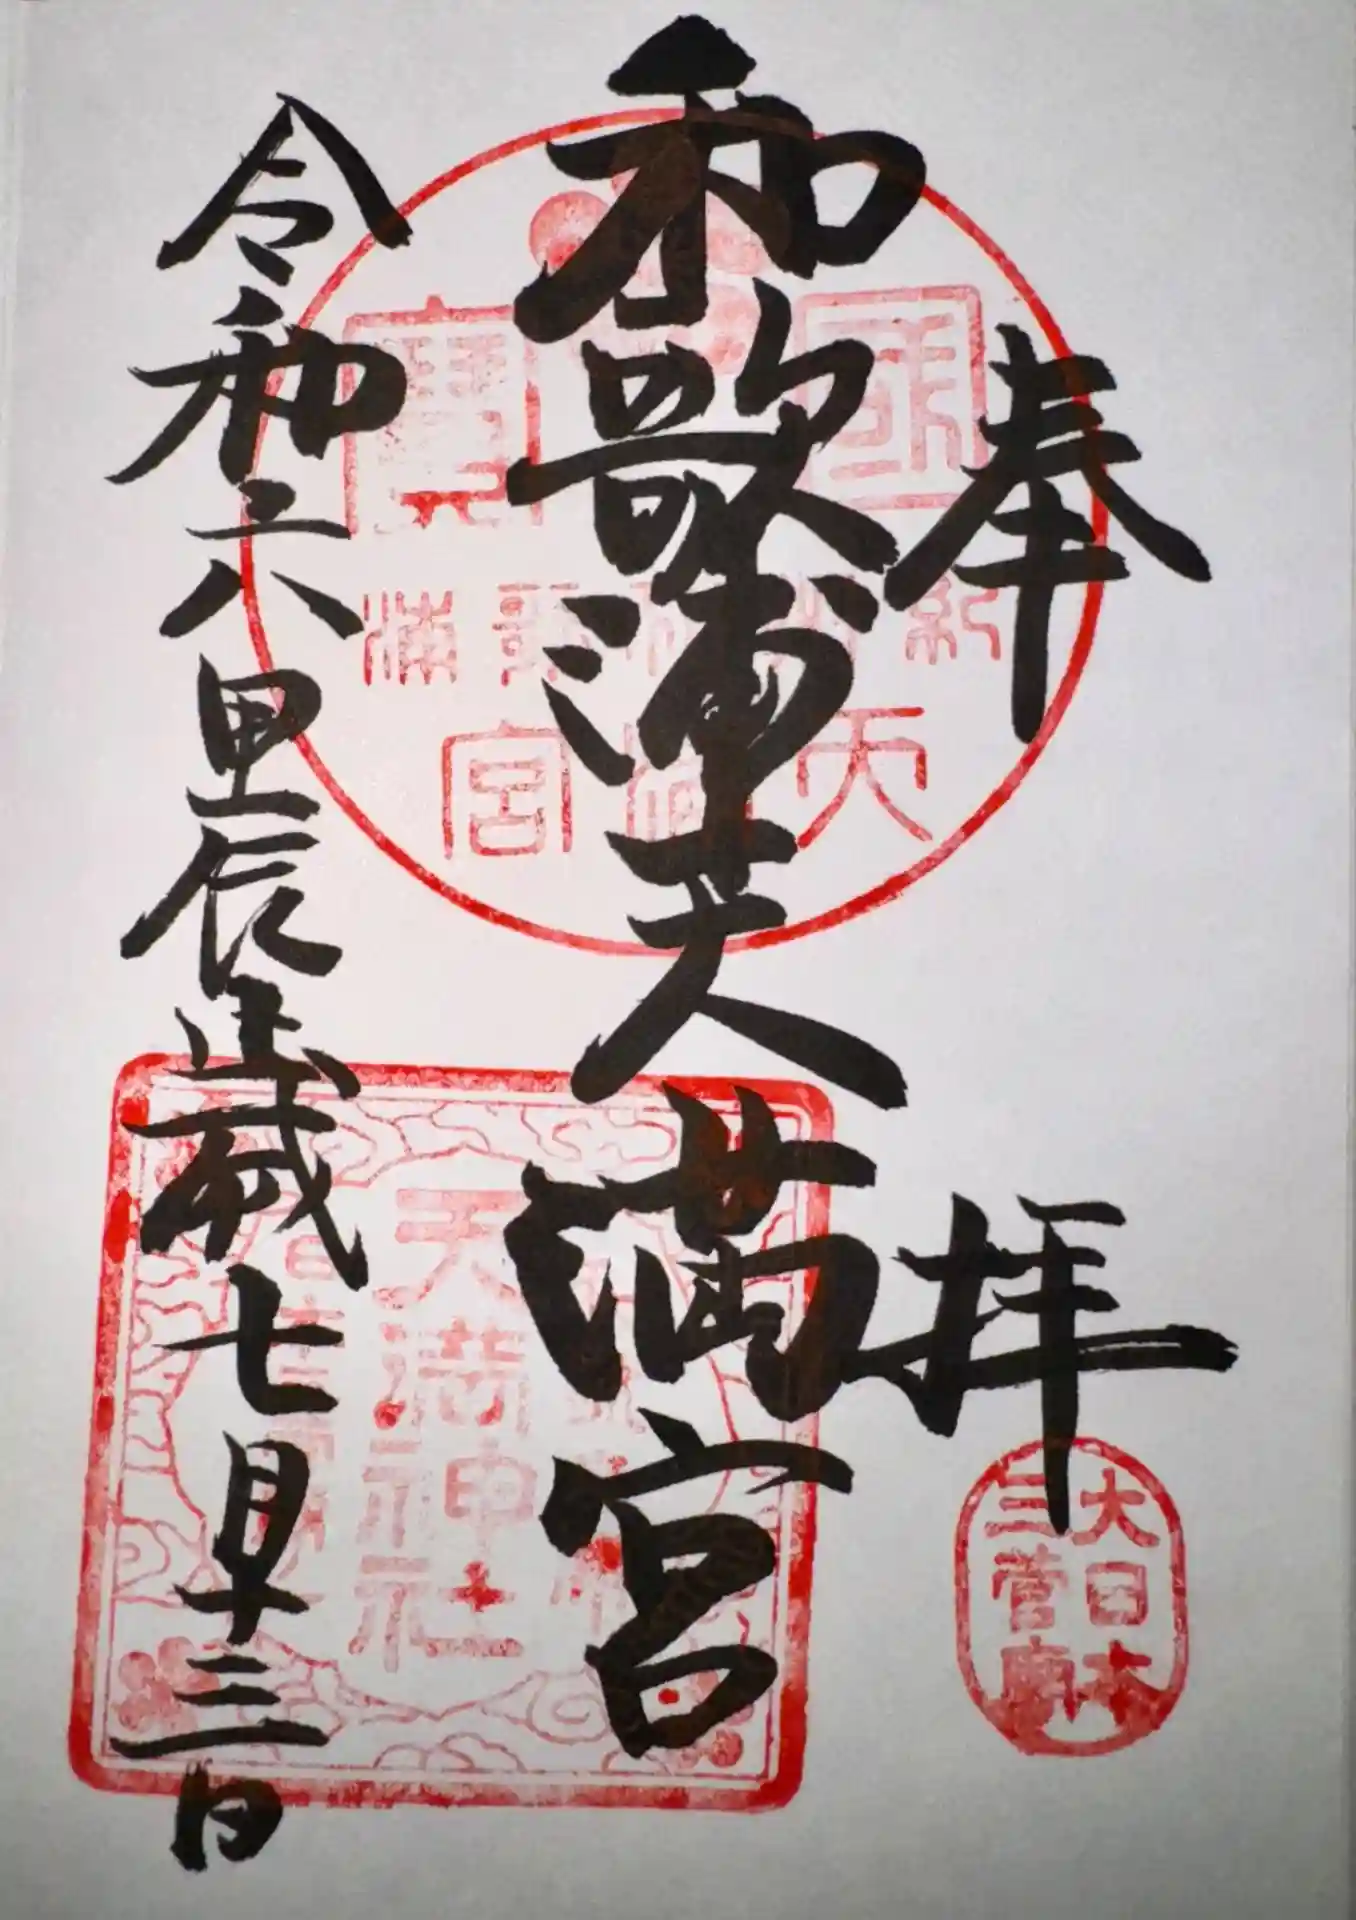 奉拝
大日本
三菅廟
和歌浦天満宮
國寶
紀州和歌浦
天満宮
天満神社
令和六甲辰歳七月十三日